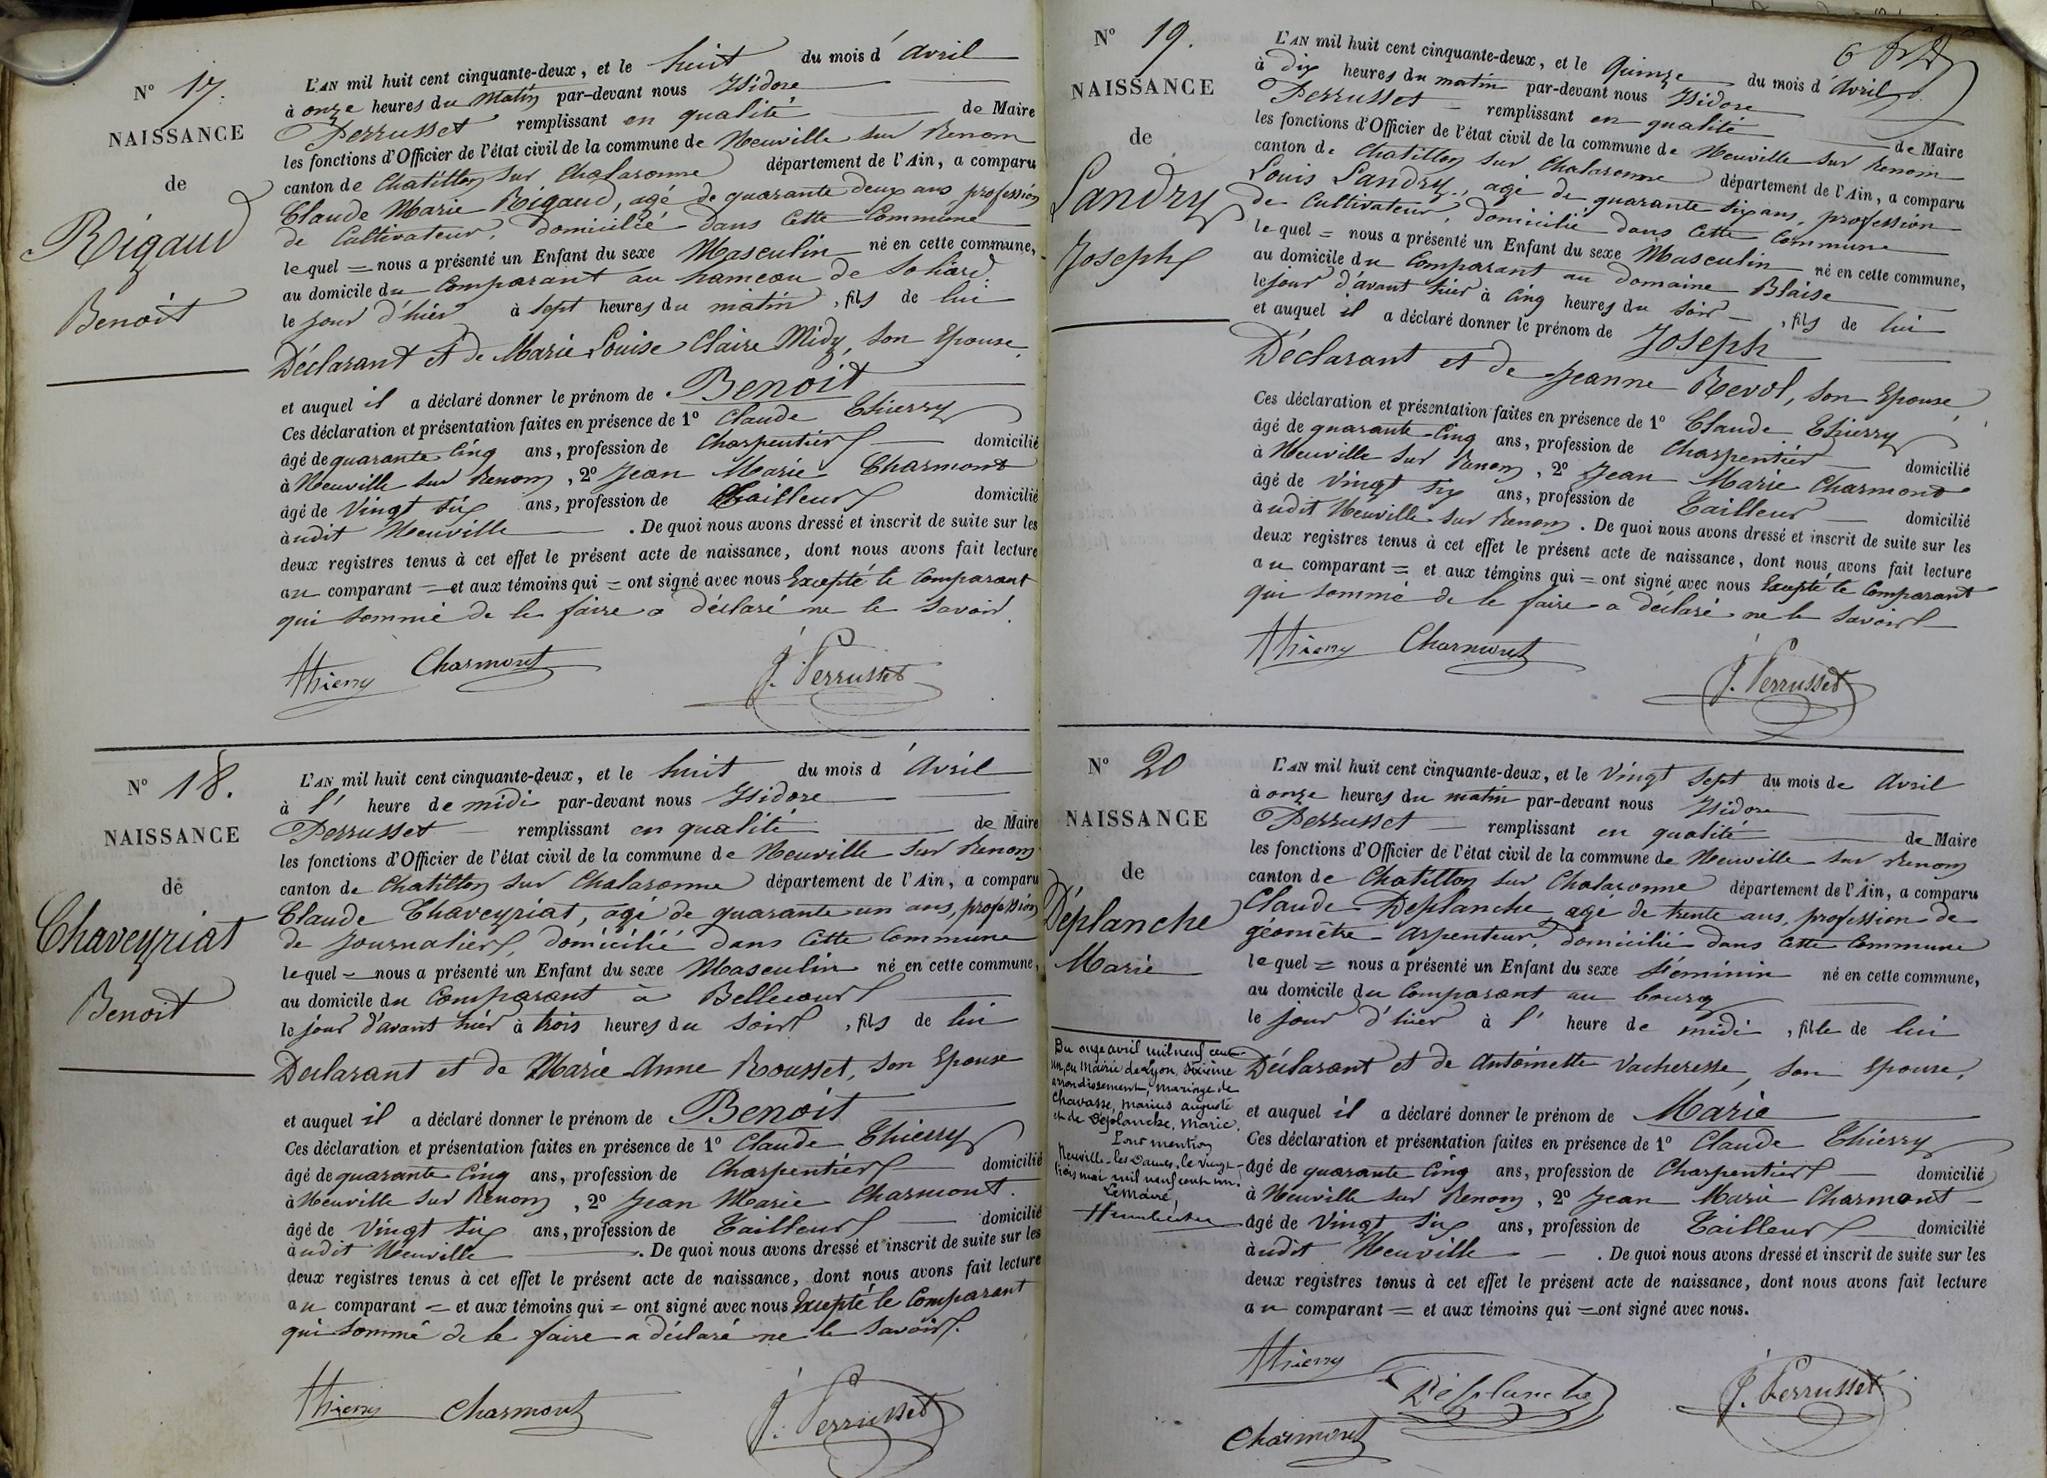 N° 17.
NAISSANCE
de
Rigaud
Benoit
L'AN mil huit cent cinquante-deux, et le huit du mois d'Avril
à onze heures du matin par-devant nous Isidore
Perrusset remplissant en qualité de Maire
les fonctions d'Officier de l'état civil de la commune de Neuville sur Renom
canton de Chatillon sur Chalaronne département de l'Ain, a comparu
Claude Marie Rigaud, agé de quarante deux ans profession
de Cultivateur, domicilié dans cette Commune
le quel = nous a présenté un Enfant du sexe Masculin né en cette commune,
au domicile du Comparant au hameau de
le jour d'hier à sept heures du matin, fils de lui
Déclarant et de Marie Louise Claire Midy, son Epouse,
et auquel il a déclaré donner le prénom de Benoit
Ces déclaration et présentation faites en présence de 1° Claude Thierry
âgé de quarante cinq ans, profession de Charpentier domicilié
à Neuville sur Renom, 2° Jean Marie Charmont
âgé de vingt six ans, profession de Tailleur domicilié
audit Neuville . De quoi nous avons dressé et inscrit de suite sur les
deux registres tenus à cet effet le présent acte de naissance, dont nous avons fait lecture
au comparant = et aux témoins qui = ont signé avec nous Excepté le Comparant
qui sommé de le faire a déclaré ne le savoir.
Thierry Charmont J. Perrusset
N° 18.
NAISSANCE
de
Chaveyriat
Benoit
L'AN mil huit cent cinquante-deux, et le huit du mois d'Avril
à l' heure de midi par-devant nous Isidore
Perrusset remplissant en qualité de Maire
les fonctions d'Officier de l'état civil de la commune de Neuville sur Renom
canton de Chatillon sur Chalaronne département de l'Ain, a comparu
Claude Chaveyriat, agé de quarante un ans, profession
de Journalier, domicilié dans cette Commune
le quel = nous a présenté un Enfant du sexe Masculin né en cette commune,
au domicile du Comparant à Bellecour
le jour d'avant hier à trois heures du soir, fils de lui
Déclarant et de Marie Anne Rousset, son Epouse
et auquel il a déclaré donner le prénom de Benoit
Ces déclaration et présentation faites en présence de 1° Claude Thierry
âgé de quarante cinq ans, profession de Charpentier domicilié
à Neuville sur Renom, 2° Jean Marie Charmont.
âgé de vingt six ans, profession de Tailleur domicilié
audit Neuville . De quoi nous avons dressé et inscrit de suite sur les
deux registres tenus à cet effet le présent acte de naissance, dont nous avons fait lecture
au comparant = et aux témoins qui = ont signé avec nous Excepté le Comparant
qui sommé de le faire a déclaré ne le savoir.
Thierry Charmont J. Perrusset
N° 19.
NAISSANCE
de
Landry
Joseph
L'AN mil huit cent cinquante-deux, et le quinze du mois d'Avril
à dix heures du matin par-devant nous Isidore
Perrusset remplissant en qualité de Maire
les fonctions d'Officier de l'état civil de la commune de Neuville sur Renom
canton de Chatillon sur Chalaronne département de l'Ain, a comparu
Louis Landry, agé de quarante six ans, profession
de Cultivateur, domicilié dans cette Commune
le quel = nous a présenté un Enfant du sexe Masculin né en cette commune,
au domicile du Comparant au domaine Blaise
le jour d'avant hier à cinq heures du soir, fils de lui
et auquel il a déclaré donner le prénom de Joseph
Déclarant et de Jeanne Revol, son Epouse,
Ces déclaration et présentation faites en présence de 1° Claude Thierry
âgé de quarante cinq ans, profession de Charpentier domicilié
à Neuville sur Renom, 2° Jean Marie Charmont
âgé de vingt six ans, profession de Tailleur domicilié
audit Neuville sur Renom. De quoi nous avons dressé et inscrit de suite sur les
deux registres tenus à cet effet le présent acte de naissance, dont nous avons fait lecture
au comparant = et aux témoins qui = ont signé avec nous Excepté le Comparant
qui sommé de le faire a déclaré ne le savoir
Thierry Charmont J. Perrusset
N° 20
NAISSANCE
de
Déplanche
Marie
Du onze avril mil neuf cent
un, en Mairie de Lyon, sixième
arrondissement, mariage de
Chavasse, Marius Auguste
et de Déplanche, Marie.
Pour mention
Neuville-les-Dames, le vingt-
trois mai mil neuf cent un.
Le Maire,
L'AN mil huit cent cinquante-deux, et le vingt sept du mois de Avril
à onze heures du matin par-devant nous Isidore
Perrusset remplissant en qualité de Maire
les fonctions d'Officier de l'état civil de la commune de Neuville sur Renom
canton de Chatillon sur Chalaronne département de l'Ain, a comparu
Claude Déplanche, agé de trente ans, profession de
géomètre Arpenteur, domicilié dans cette Commune
le quel = nous a présenté un Enfant du sexe féminin né en cette commune,
au domicile du Comparant au bourg
le jour d'hier à l' heure de midi, fille de lui
Déclarant et de Antoinette Vacheresse, son Epouse,
et auquel il a déclaré donner le prénom de Marie
Ces déclaration et présentation faites en présence de 1° Claude Thierry
âgé de quarante cinq ans, profession de Charpentier domicilié
à Neuville sur Renom, 2° Jean Marie Charmont
âgé de vingt six ans, profession de Tailleur domicilié
audit Neuville . De quoi nous avons dressé et inscrit de suite sur les
deux registres tenus à cet effet le présent acte de naissance, dont nous avons fait lecture
au comparant = et aux témoins qui = ont signé avec nous.
Thierry Déplanche J. Perrusset
Charmont